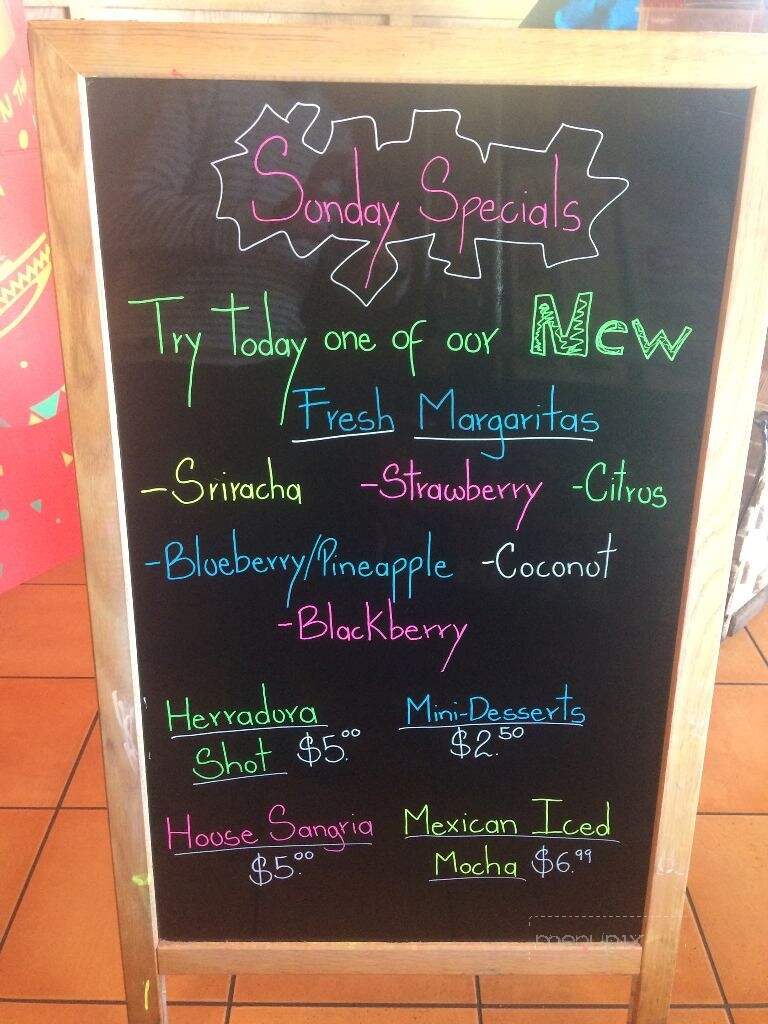 Sunday Specials
Try Today one of our New
Fresh Margaritas
-Sriracha -Strawberry -Citrus
-Blueberry/Pineapple -Coconut
-Blackberry
Herradura Mini-Desserts
Shot $5.00 $2.50
House Sangria Mexican Iced
$5.00 Mocha $6.99
menupix